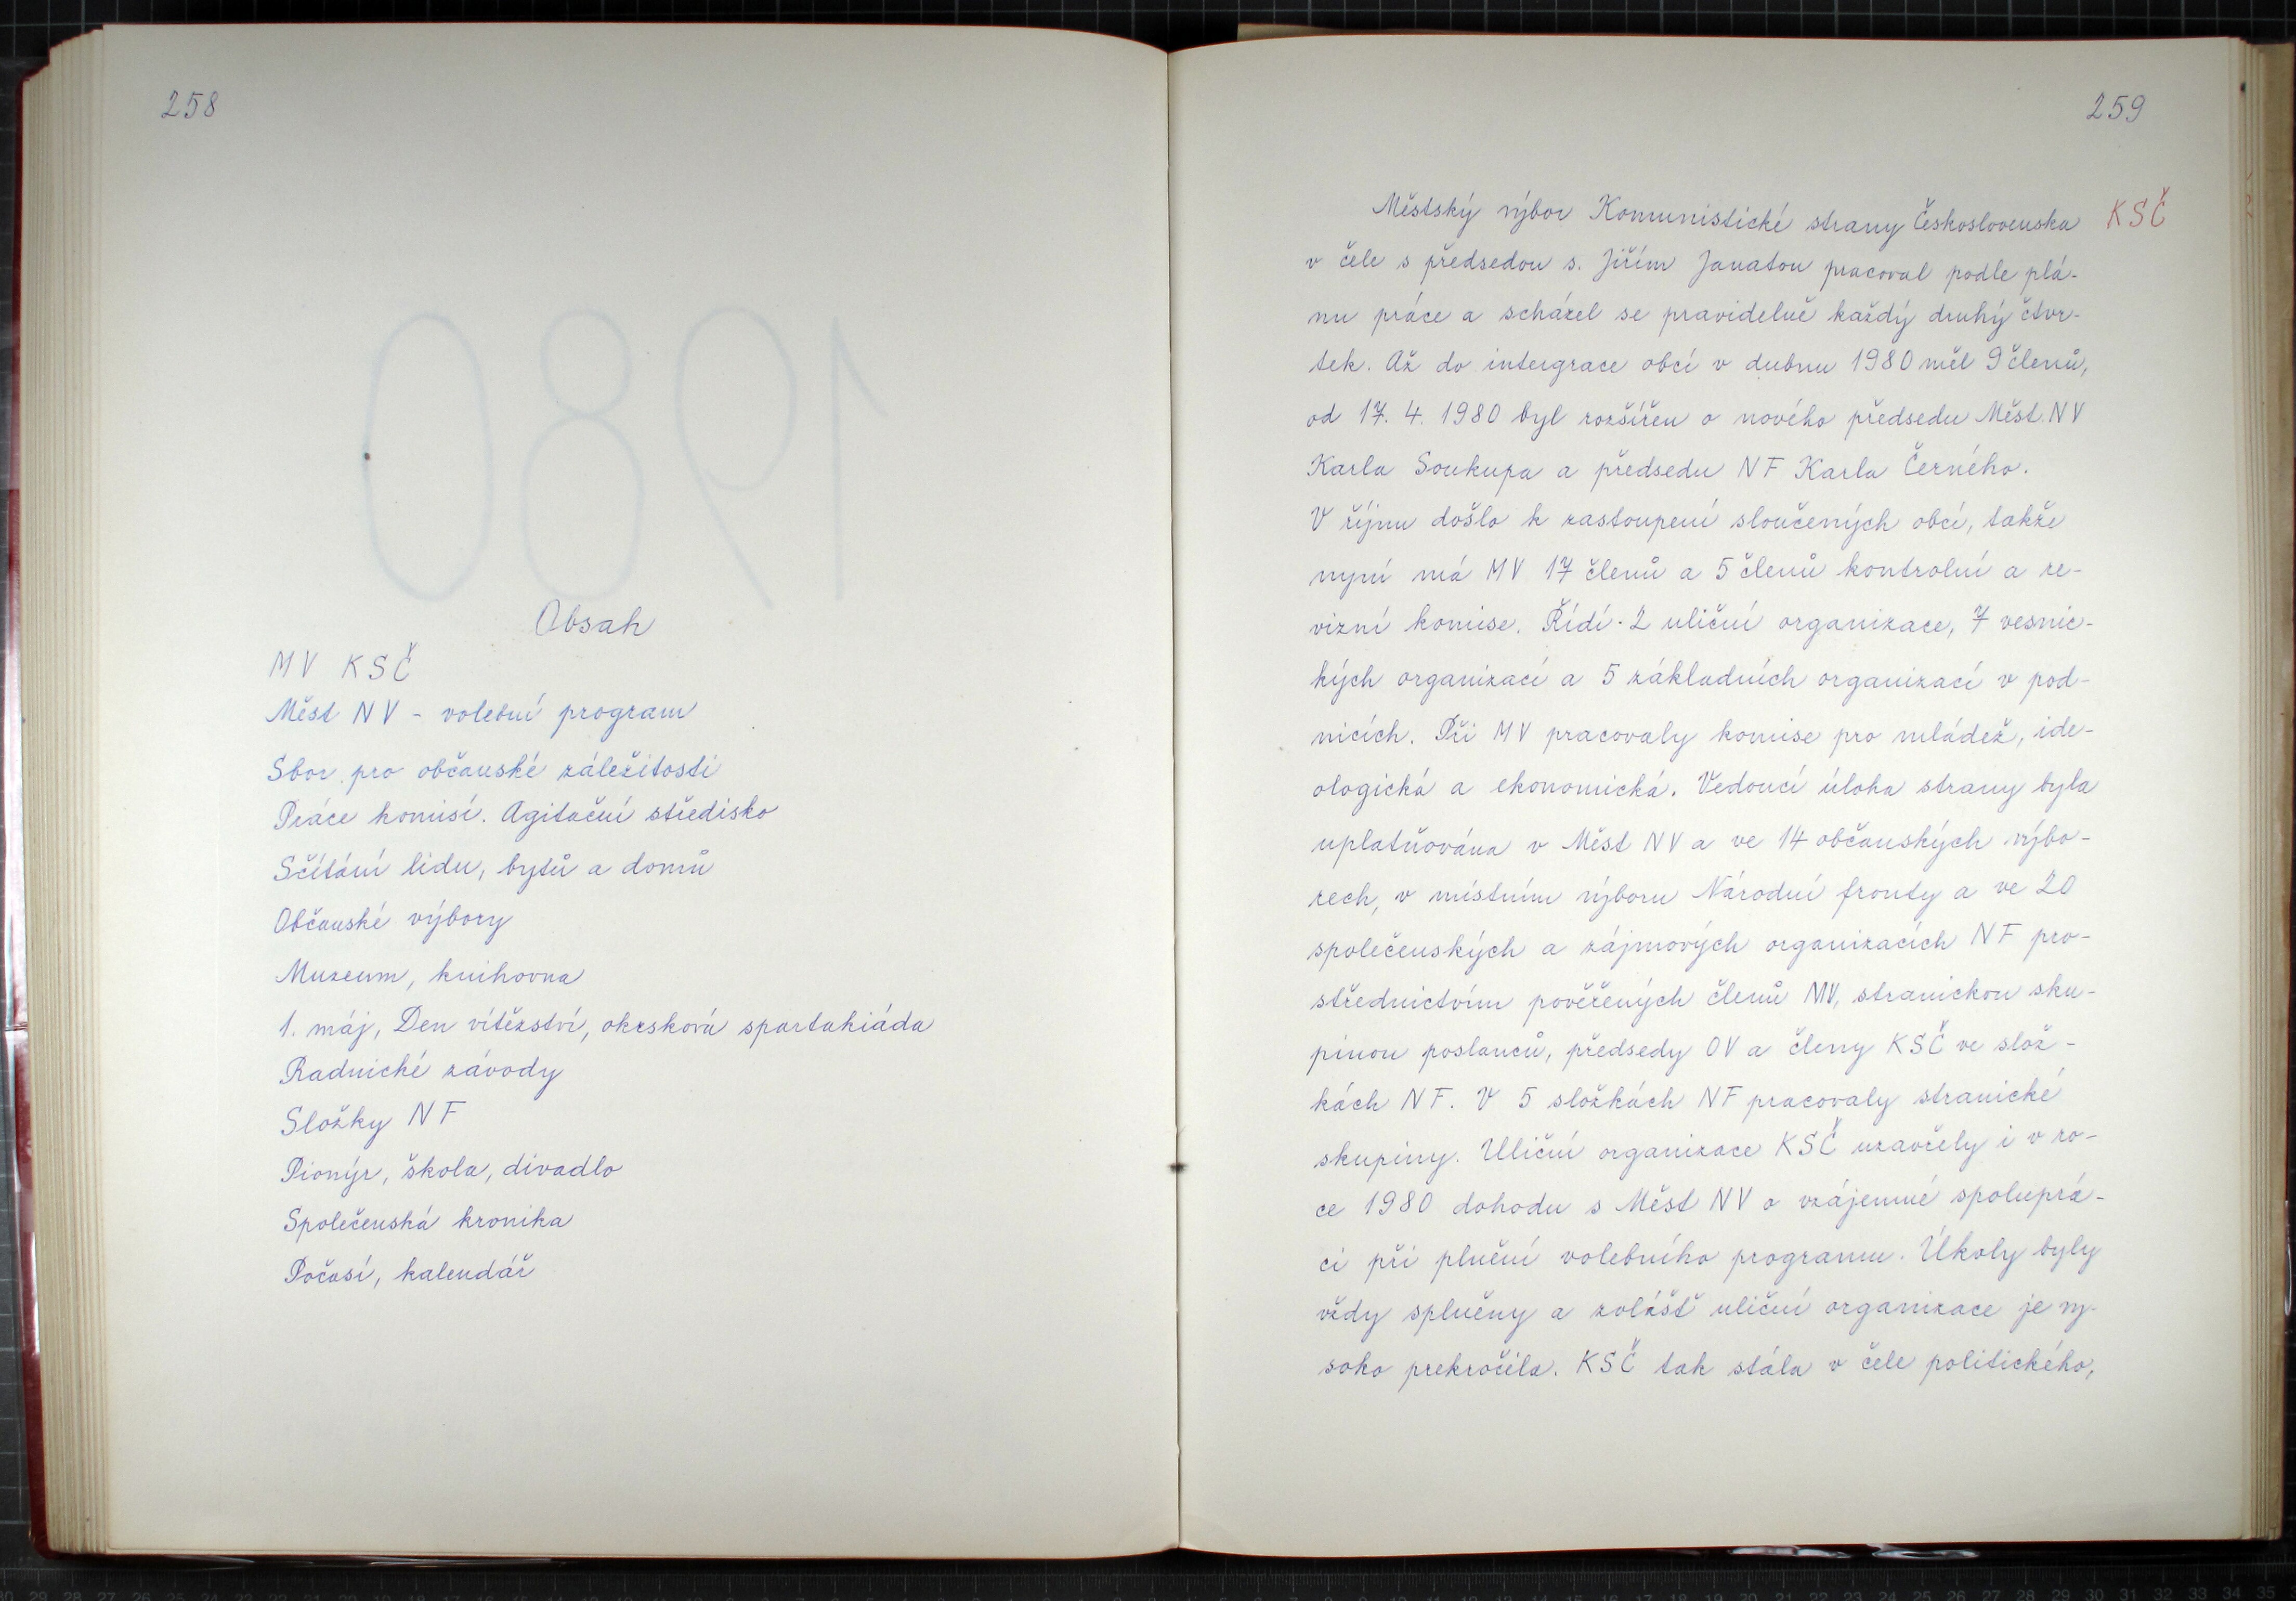 258
Obsah
MV KSČ
Měst NV - volební program
Sbor pro občanské záležitosti
Práce komisí. Agitační středisko
Sčítání lidu, bytů a domů
Občanské výbory
Muzeum, knihovna
1. máj, Den vítězství, okrsková spartakiáda
Radnické závody
Složky NF
Pionýr, škola, divadlo
Společenská kronika
Počasí, kalendář
259
KSČ
Městský výbor Komunistické strany Československa
v čele s předsedou s. Jiřím Janatou pracoval podle plá-
nu práce a scházel se pravidelně každý druhý čtvr-
tek. Až do intergrace obcí v dubnu 1980 měl 9 členů,
od 17. 4. 1980 byl rozšířen o nového předsedu Měst. NV
Karla Soukupa a předsedu NF Karla Černého.
V říjnu došlo k zastoupení sloučených obcí, takže
nyní má MV 17 členů a 5 členů kontrolní a re-
vizní komise. Řídí 2 uliční organizace, 7 vesnic-
kých organizací a 5 základních organizací v pod-
nicích. Při MV pracovaly komise pro mládež, ide-
ologická a ekonomická. Vedoucí úloha strany byla
uplatňována v Měst NV a ve 14 občanských výbo-
rech, v místním výboru Národní fronty a ve 20
společenských a zájmových organizacích NF pro-
střednictvím pověřených členů MV, stranickou sku-
pinou poslanců, předsedy OV a členy KSČ ve slož-
kách NF. V 5 složkách NF pracovaly stranické
skupiny. Uliční organizace KSČ uzavřely i v ro-
ce 1980 dohodu s Měst NV o vzájemné spoluprá-
ci při plnění volebního programu. Úkoly byly
vždy splněny a zvlášť uliční organizace je vy-
soko prekročila. KSČ tak stála v čele politického,